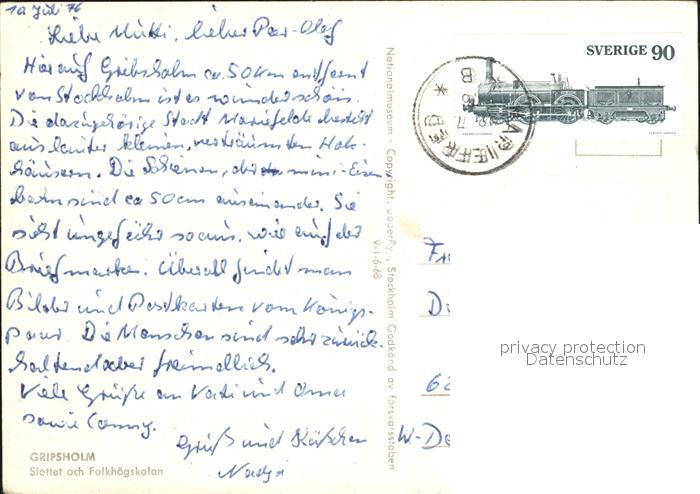 10 Juli 76
Liebe Mutti, lieber Per-Olaf
Hier auf Gribsholm ca. 50 Km entfernt
von Stockholm ist es wunderschön.
Die dazugehörige Stadt Mariefelde besteht
aus lauter kleinen, verträumten Holz-
häusern. Die Schienen, der mini-Eisen
bahn sind ca 50 cm auseinander. Sie
sieht ungefähr so aus, wie auf der
Briefmarke. Überall findet man
Bilder und Postkarten vom Königs-
paar. Die Menschen sind sehr zurück-
haltend aber freundlich.
Viele Grüße an Vati und Oma
sowie Conny.
Gruß und Küßchen
Nadja
GRIPSHOLM
Slottet och Folkhögskolan
Nationalmuseum · Copyright: Stockholm Godkänd av försvarsstaben
V-1-6-68
SVERIGE 90
MARIEFRED
Fr
D
62
W-De
privacy protection
Datenschutz